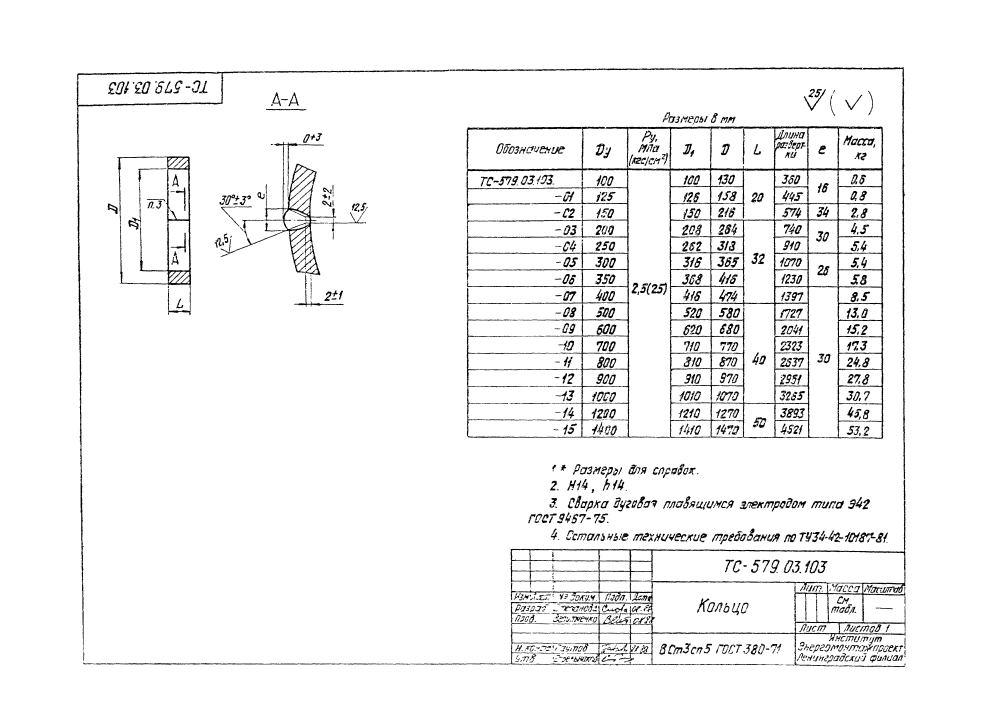 ТС-579.03.103
А-А
0+3
30°±3°
е
2±2
12,5
12,5
2±1
D
D₁
п.3
А
А
L
25 (√)
Размеры в мм
Обозначение Dу Pу, МПа (кгс/см²) D₁ D L Длина разверт-ки е Масса, кг
ТС-579.03.103. 100 2,5(25) 100 130 20 360 16 0,6
-01 125 126 158 445 0,8
-02 150 150 216 574 34 2,8
-03 200 208 264 32 740 30 4,5
-04 250 262 318 910 5,4
-05 300 316 365 1070 26 5,4
-06 350 368 416 1230 5,8
-07 400 416 474 40 1397 30 8,5
-08 500 520 580 1727 13,0
-09 600 620 680 2041 15,2
-10 700 710 770 2323 17,3
-11 800 810 870 2637 24,8
-12 900 910 970 2951 27,8
-13 1000 1010 1070 3265 30,7
-14 1200 1210 1270 50 3893 45,8
-15 1400 1410 1470 4521 53,2
1* Размеры для справок.
2. Н14, h14.
3. Сварка дуговая плавящимся электродом типа Э42
ГОСТ 9467-75.
4. Остальные технические требования по ТУ34-42-10187-81.
ТС-579.03.103
Кольцо
Лит. Масса Масштаб
См. табл. —
Лист Листов 1
№ докум. Подп. Дата
Разраб
Пров.
Н.конт
Утв
ВСт3сп5 ГОСТ 380-71
Институт
Энергомонтажпроект
Ленинградский филиал